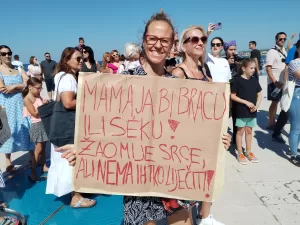 MAMA JA BI BRACU
ILI SEKU!
ŽAO MI JE SRCE,
ALI NEMA IH TKO LIJEČITI!